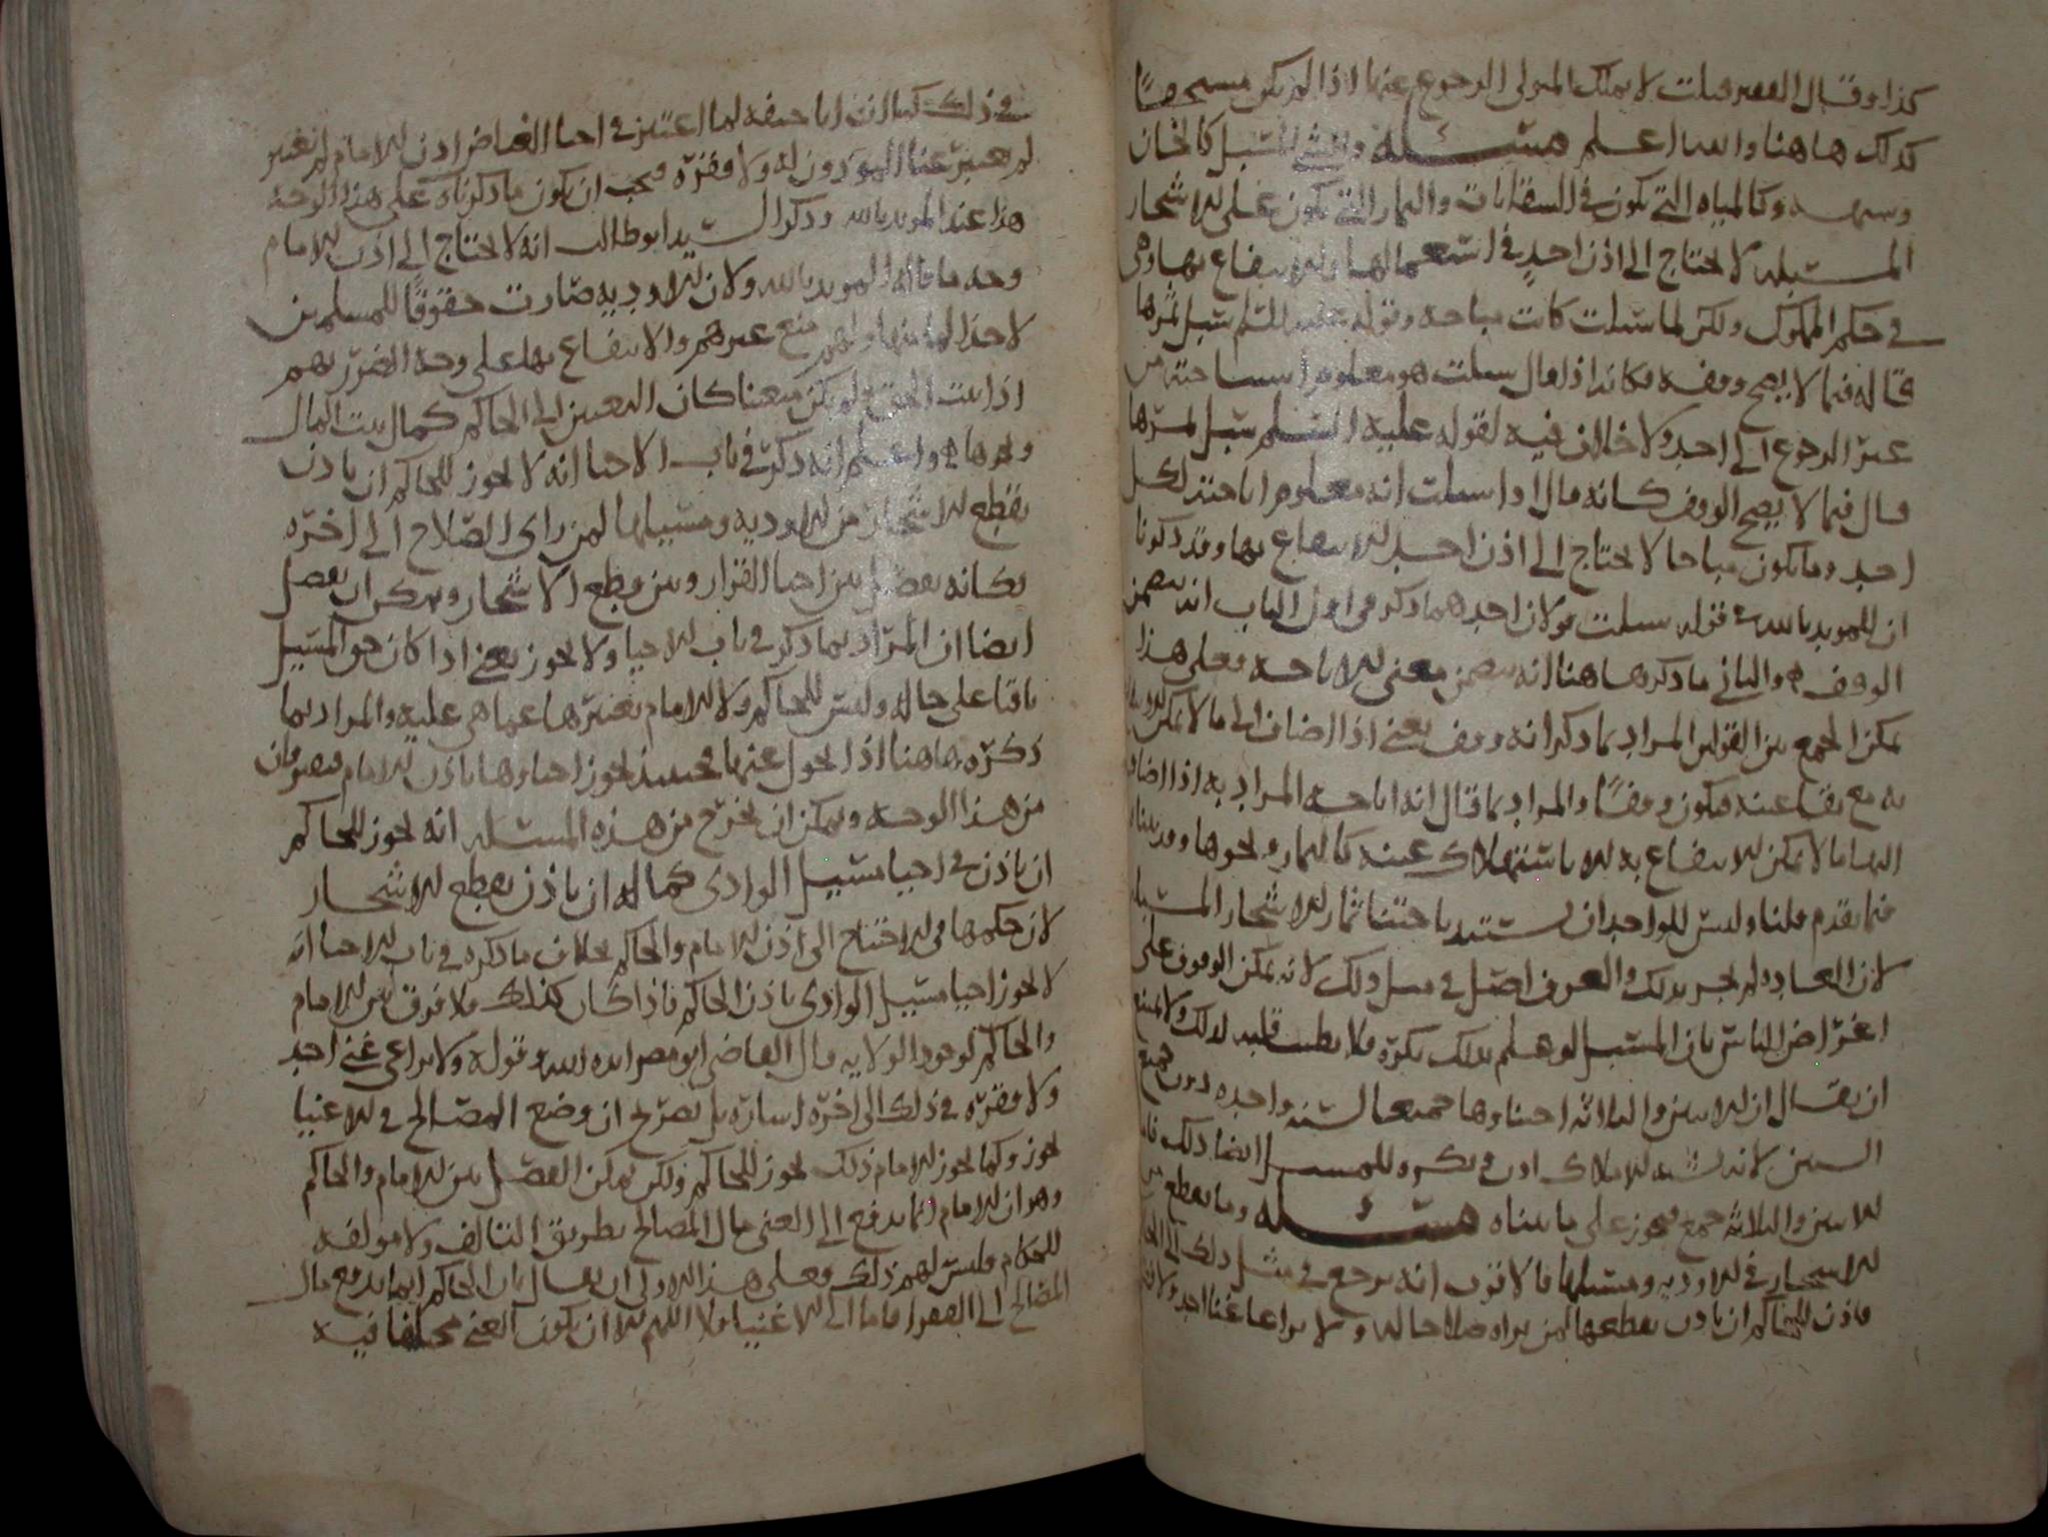 كذا وقال الفقير قبلت لا يملك المولى الرجوع عنها اذا لم يكن مسجدا
كذلك هاهنا والله اعلم مسئله والشي المسبل كالخان
وكالمياه التي تكون في السقايات والثمار التي تكون على الاشجار
المسبله لا يحتاج الى اذن احد في استعمالها والانتفاع بها وهي
في حكم المملوك ولكن لما سبلت كانت مباحه وقوله عليه السلم سبل ثمرها
قاله فيما لا يصح وقفه فكانه اذا قال سبلت هو معلوم اباحته من
غير الرجوع الى احد ولا خلاف فيه لقوله عليه السلم سبل ثمرها
قال فيما لا يصح الوقف كانه قال اذا سبلت انه معلوم اباحته لكل
احد وما يكون مباحا لا يحتاج الى اذن احد للانتفاع بها وقد ذكرنا
ان للمويد بالله في قوله سبلت قولان احدهما ذكر في اول الباب انه يتضمن
الوقف والثاني ما ذكر هاهنا انه يتضمن معنى الاباحه فعلى هذا
يمكن الجمع بين القولين المراد بما ذكر انه وقف يعني اذا اضاف الى ما لا يمكن
به مع بقا عينه فيكون وقفا والمراد بما قال انه اباحه المراد به اذا اضاف
اليها ما لا يمكن الانتفاع به الا باستهلاك عينه كالثمار ونحوها وقد بينا
فيما تقدم قلنا وليس للواحد ان يستبد باجتنا ثمار الاشجار المسبله
لان العاده لم تجر بذلك والعرف اصل في مثل ذلك لانه يمكن الوقوف على
اغراض الناس بان المسبل لو علم بذلك يكره ولا يطيب قلبه لذلك ولا يمتنع
ان يقال ان الاثنين والثلاثه اجتناوها جميعا لسنه واحده دون جميع
السنين لانه يشبه الاملاك او في يكره للمسبل ايضا ذلك
الاثنين والثلاثه جمع فيجوز على ما بيناه مسئله وما يقطع من
الاشجار في الاوديه ومسيلها فالاقرب انه يرجع في مثل ذلك الى
فاذن للحاكم ان ياذن بقطعها لمن يراه صلاحا له ولا يراعا غنا احد ولا
في ذلك كما ان ابا حنيفه لما اعتبر في احيا الغامر اذن الامام لم يعتبر
لم يعتبر غنا الموذون له ولا فقره فيجب ان يكون ما ذكرناه على هذا الوجه
هذا عند المويد بالله وذكر السيد ابو طالب انه لا يحتاج الى اذن الامام
وجه ما قاله المويد بالله ولان الاوديه صارت حقوقا للمسلمين
منع غيرهم والانتفاع بها على وجه الضرر بهم
اذا ثبت الحق ولم يكن معينا كان التعيين الى الحاكم كمال بيت المال
ونحوها واعلم انه ذكر في باب الاحيا انه لا يجوز للحاكم ان ياذن
بقطع الاشجار من الاوديه ومسيلها لمن راى الصلاح الى اخره
فكانه يفصل بين احيا القرار وبين قطع الاشجار ويمكن ان يفصل
ايضا ان المراد بما ذكر في باب الاحيا ولا يجوز يعني اذا كان حق المسيل
باقيا على حاله وليس للحاكم ولا للامام تغييرها عما هي عليه والمراد بما
ذكره هاهنا اذا تحول عنها فحينئذ يجوز احياوها باذن الامام
من هذا الوجه ويمكن ان يخرج من هذه المسئله انه يجوز للحاكم
ان ياذن في احيا مسيل الوادي كما له ان ياذن بقطع الاشجار
لان حكمها في الاحتياج الى اذن الامام والحاكم بخلاف ما ذكره في باب الاحيا انه
لا يجوز احيا مسيل الوادي باذن الحاكم فاذا كان كذلك فلا فرق بين الامام
والحاكم لوجود الولايه قال القاضي ابو مضر ايده الله قوله ولا يراعى غنى احد
ولا فقره في ذلك الى اخره اشاره بل تصريح ان وضع المصالح في الاغنيا
يجوز وكما يجوز للامام ذلك يجوز للحاكم ولكن يمكن الفصل بين الامام والحاكم
وهو ان الامام انما يدفع الى الغني مال المصالح بطريق التالف ولا مولفه
للحكام وليس لهم ذلك فعلى هذا الاولى ان يقال بان الحاكم انما يدفع مال
المصالح الى الفقرا فاما الى الاغنيا فلا اللهم الا ان يكون الغني مختلفا فيه